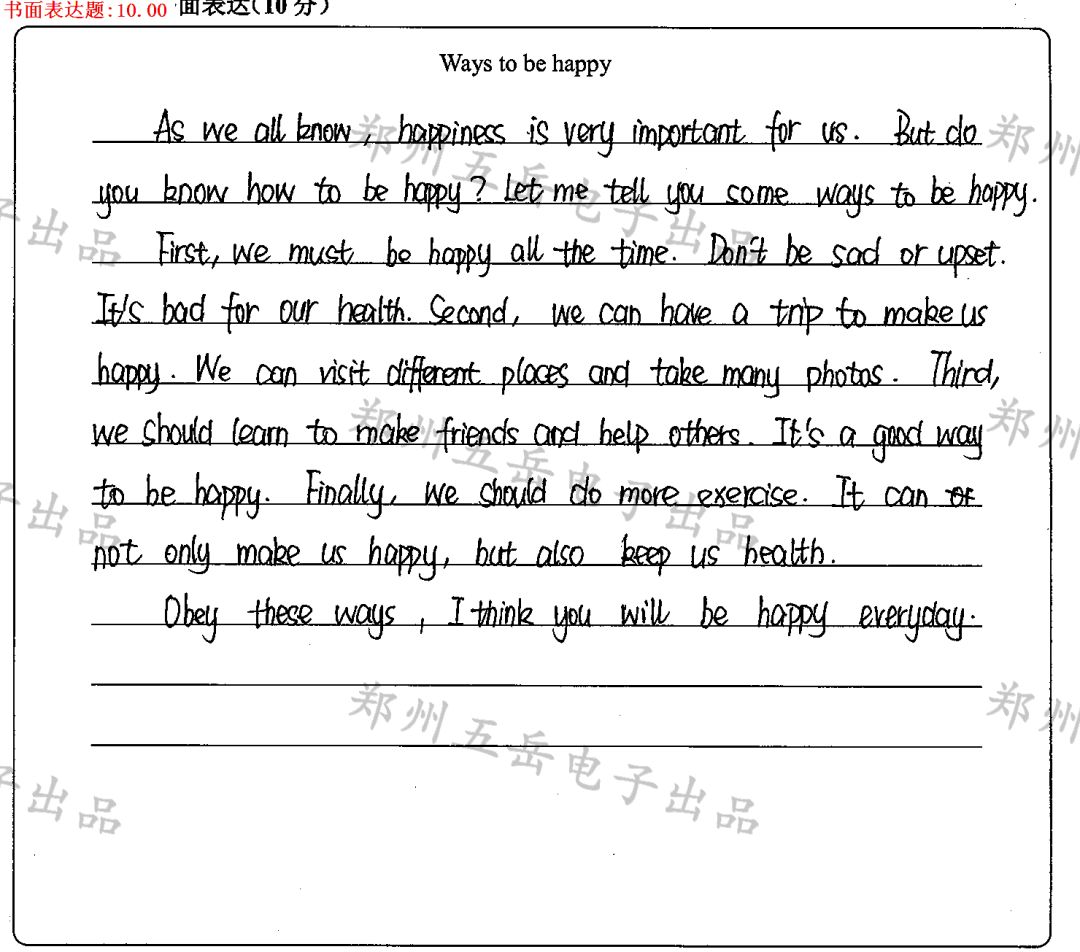 书面表达题:10.00 面表达(10分)
Ways to be happy
As we all know, happiness is very important for us. But do
you know how to be happy? Let me tell you some ways to be happy.
First, we must be happy all the time. Don't be sad or upset.
It's bad for our health. Second, we can have a trip to make us
happy. We can visit different places and take many photos. Third,
we should learn to make friends and help others. It's a good way
to be happy. Finally, we should do more exercise. It can
not only make us happy, but also keep us health.
Obey these ways, I think you will be happy everyday.
郑州五岳电子出品